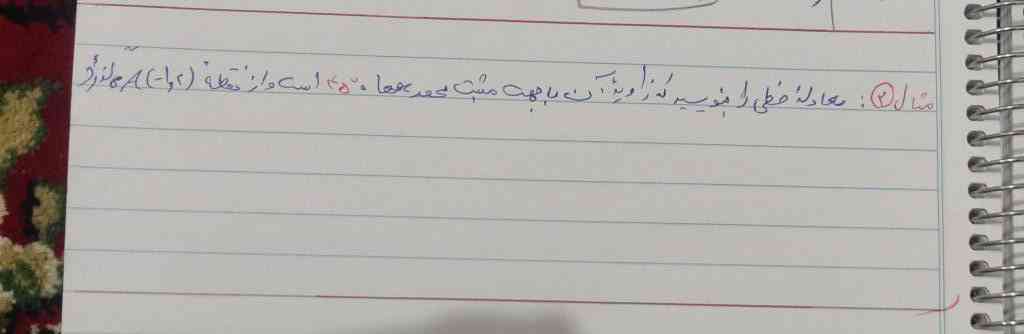 مثال ②: معادلهٔ خطی را بنویسید که زاویهٔ آن با جهت مثبت محور xها ۴۵° است و از نقطهٔ A(-۱,۲) می‌گذرد